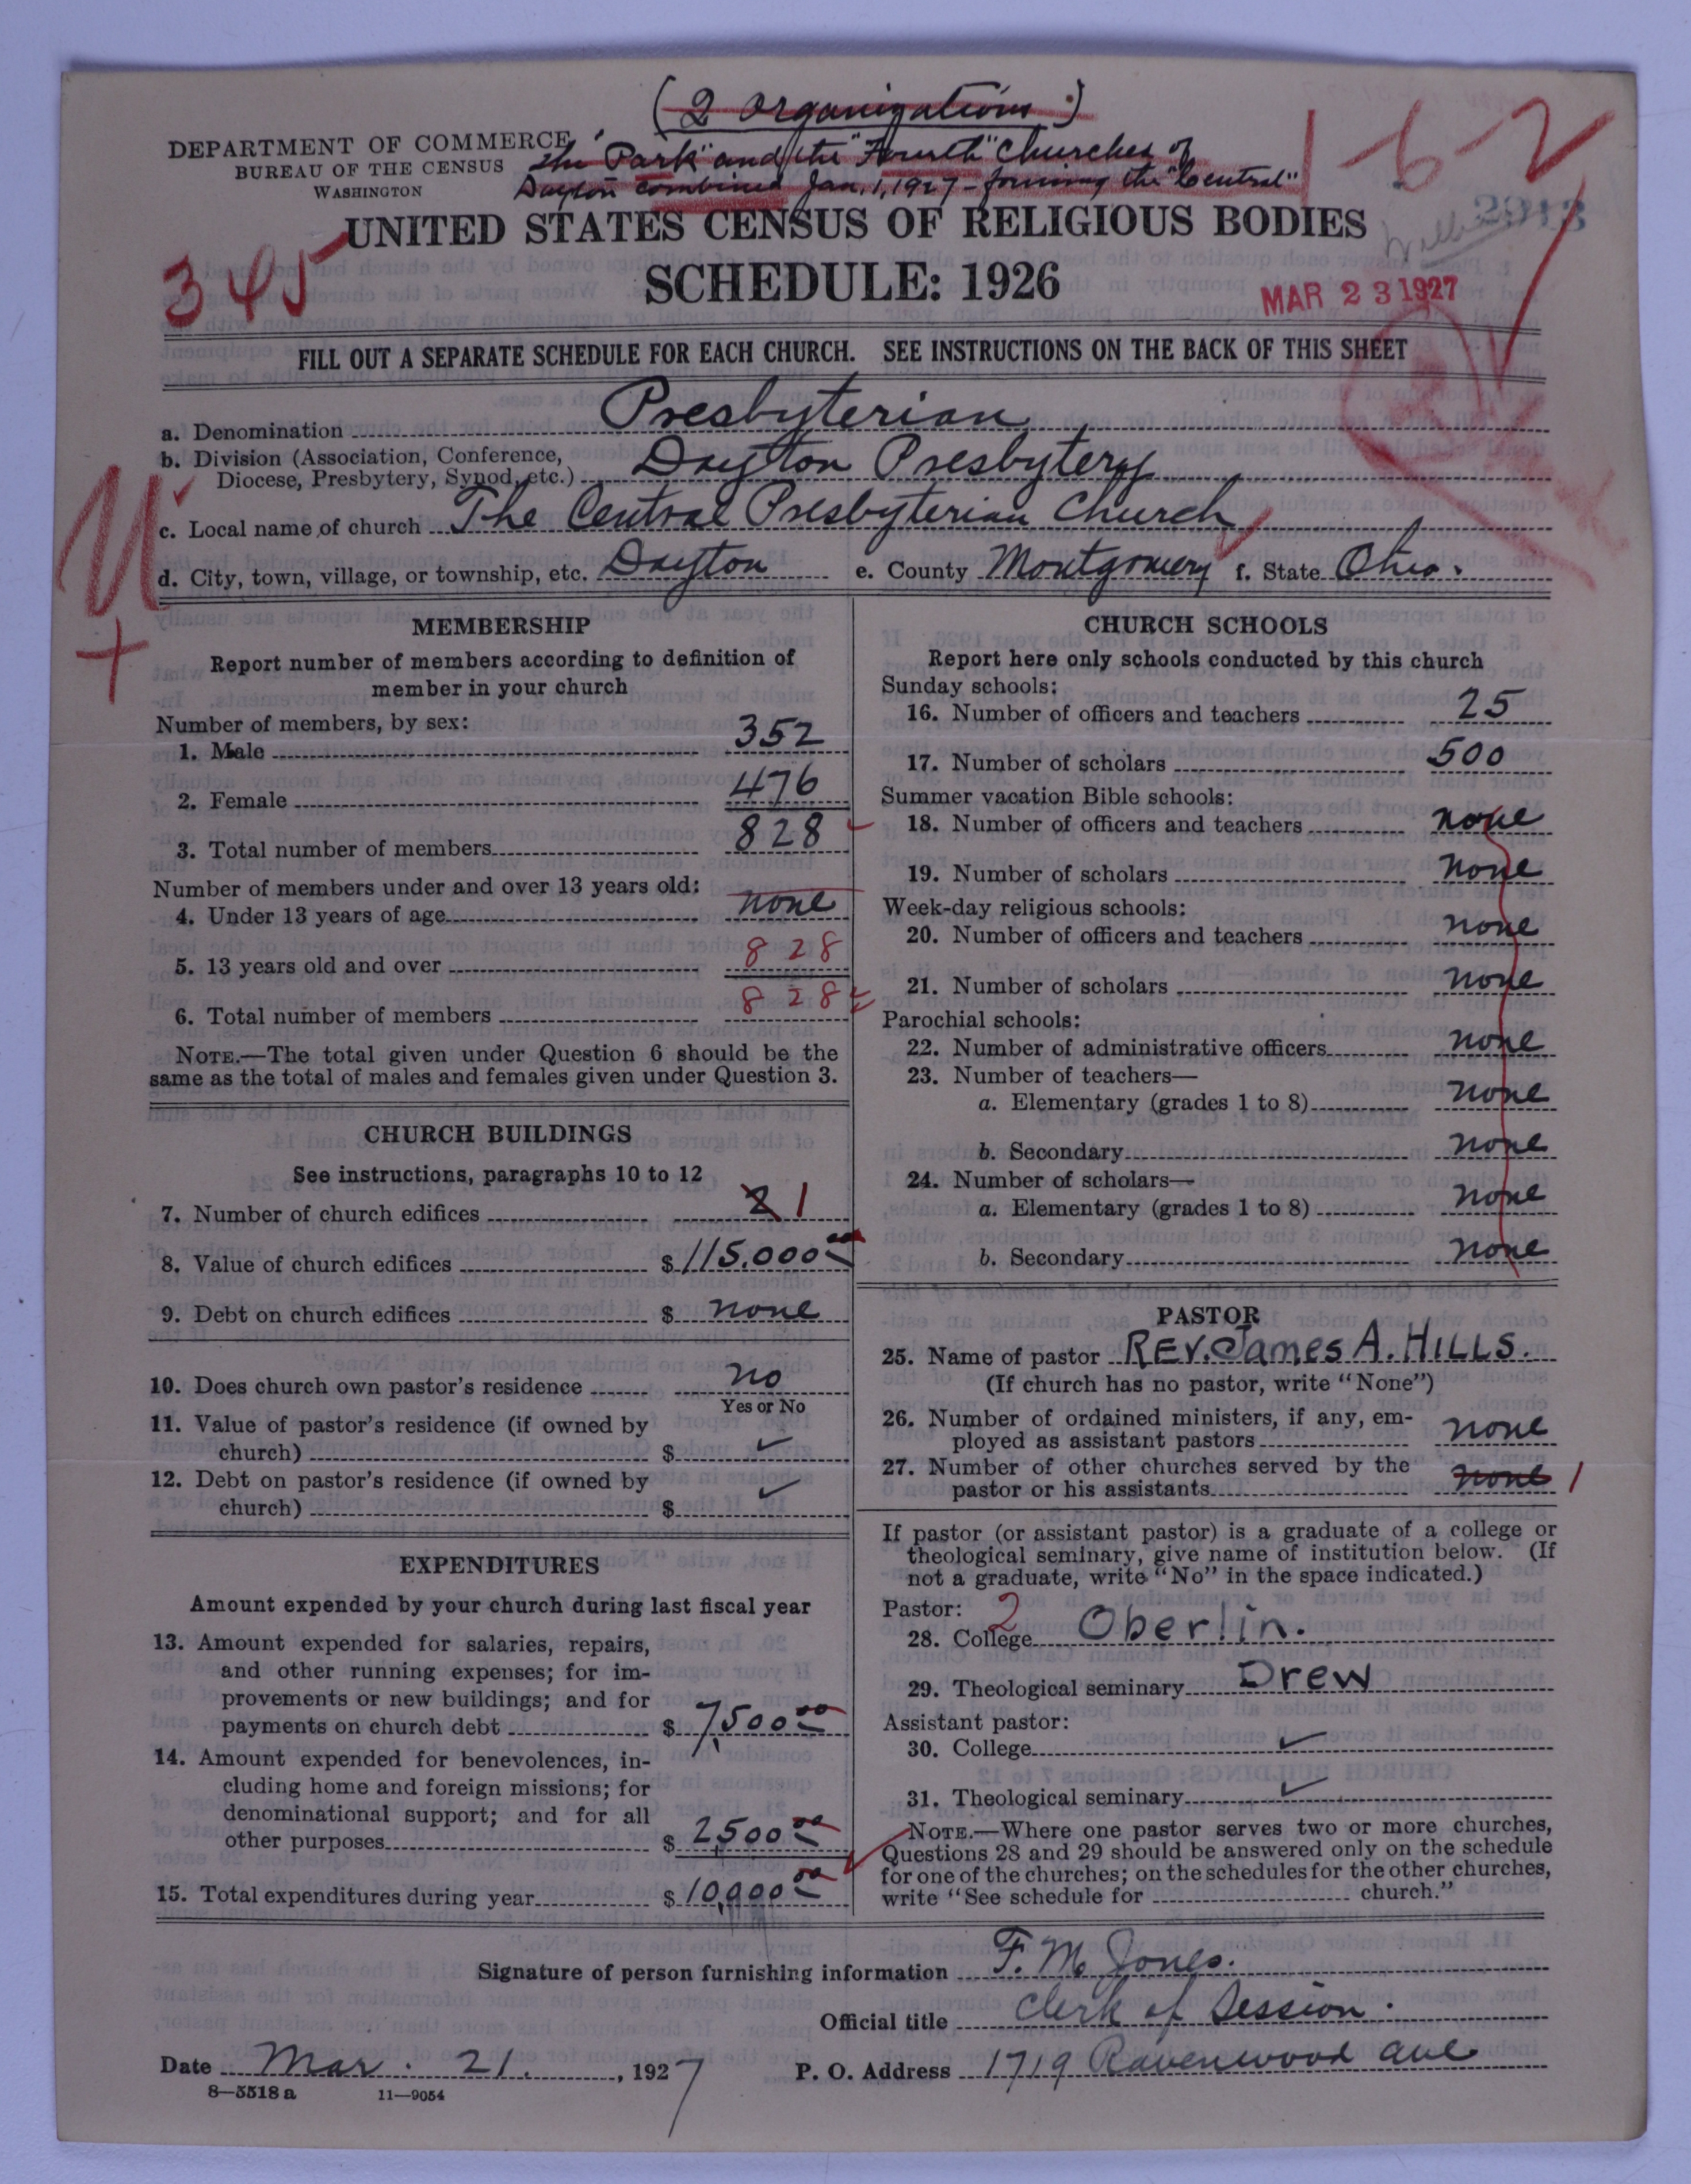 (2 Organizations.)
DEPARTMENT OF COMMERCE
BUREAU OF THE CENSUS
WASHINGTON
The "Park" and the "Fourth" Churches of
Dayton combined Jan. 1, 1927 - forming the "Central"
1-6-2
2913
UNITED STATES CENSUS OF RELIGIOUS BODIES
345
SCHEDULE: 1926
MAR 23 1927
FILL OUT A SEPARATE SCHEDULE FOR EACH CHURCH. SEE INSTRUCTIONS ON THE BACK OF THIS SHEET
a. Denomination Presbyterian
b. Division (Association, Conference,
Diocese, Presbytery, Synod, etc.) Dayton Presbytery
c. Local name of church The Central Presbyterian Church
d. City, town, village, or township, etc. Dayton e. County Montgomery f. State Ohio.
MEMBERSHIP
Report number of members according to definition of
member in your church
Number of members, by sex:
1. Male 352
2. Female 476
3. Total number of members 828
Number of members under and over 13 years old:
4. Under 13 years of age none
5. 13 years old and over 828
6. Total number of members 828
NOTE.—The total given under Question 6 should be the
same as the total of males and females given under Question 3.
CHURCH BUILDINGS
See instructions, paragraphs 10 to 12
7. Number of church edifices 2 1
8. Value of church edifices $ 115,000 00
9. Debt on church edifices $ none
10. Does church own pastor's residence no
Yes or No
11. Value of pastor's residence (if owned by
church) $ ✓
12. Debt on pastor's residence (if owned by
church) $ ✓
EXPENDITURES
Amount expended by your church during last fiscal year
13. Amount expended for salaries, repairs,
and other running expenses; for im-
provements or new buildings; and for
payments on church debt $ 7,500 00
14. Amount expended for benevolences, in-
cluding home and foreign missions; for
denominational support; and for all
other purposes $ 2,500 00
15. Total expenditures during year $ 10,000 00
CHURCH SCHOOLS
Report here only schools conducted by this church
Sunday schools:
16. Number of officers and teachers 25
17. Number of scholars 500
Summer vacation Bible schools:
18. Number of officers and teachers none
19. Number of scholars none
Week-day religious schools:
20. Number of officers and teachers none
21. Number of scholars none
Parochial schools:
22. Number of administrative officers none
23. Number of teachers—
a. Elementary (grades 1 to 8) none
b. Secondary none
24. Number of scholars—
a. Elementary (grades 1 to 8) none
b. Secondary none
PASTOR
25. Name of pastor REV. James A. HILLS.
(If church has no pastor, write "None")
26. Number of ordained ministers, if any, em-
ployed as assistant pastors none
27. Number of other churches served by the
pastor or his assistants none 1
If pastor (or assistant pastor) is a graduate of a college or
theological seminary, give name of institution below. (If
not a graduate, write "No" in the space indicated.)
Pastor: 2
28. College Oberlin.
29. Theological seminary Drew
Assistant pastor:
30. College ✓
31. Theological seminary ✓
NOTE.—Where one pastor serves two or more churches,
Questions 28 and 29 should be answered only on the schedule
for one of the churches; on the schedules for the other churches,
write "See schedule for church."
Signature of person furnishing information F. M. Jones.
Official title Clerk of Session.
Date Mar. 21, 1927 P. O. Address 1719 Ravenwood Ave
8—5518 a 11—9054